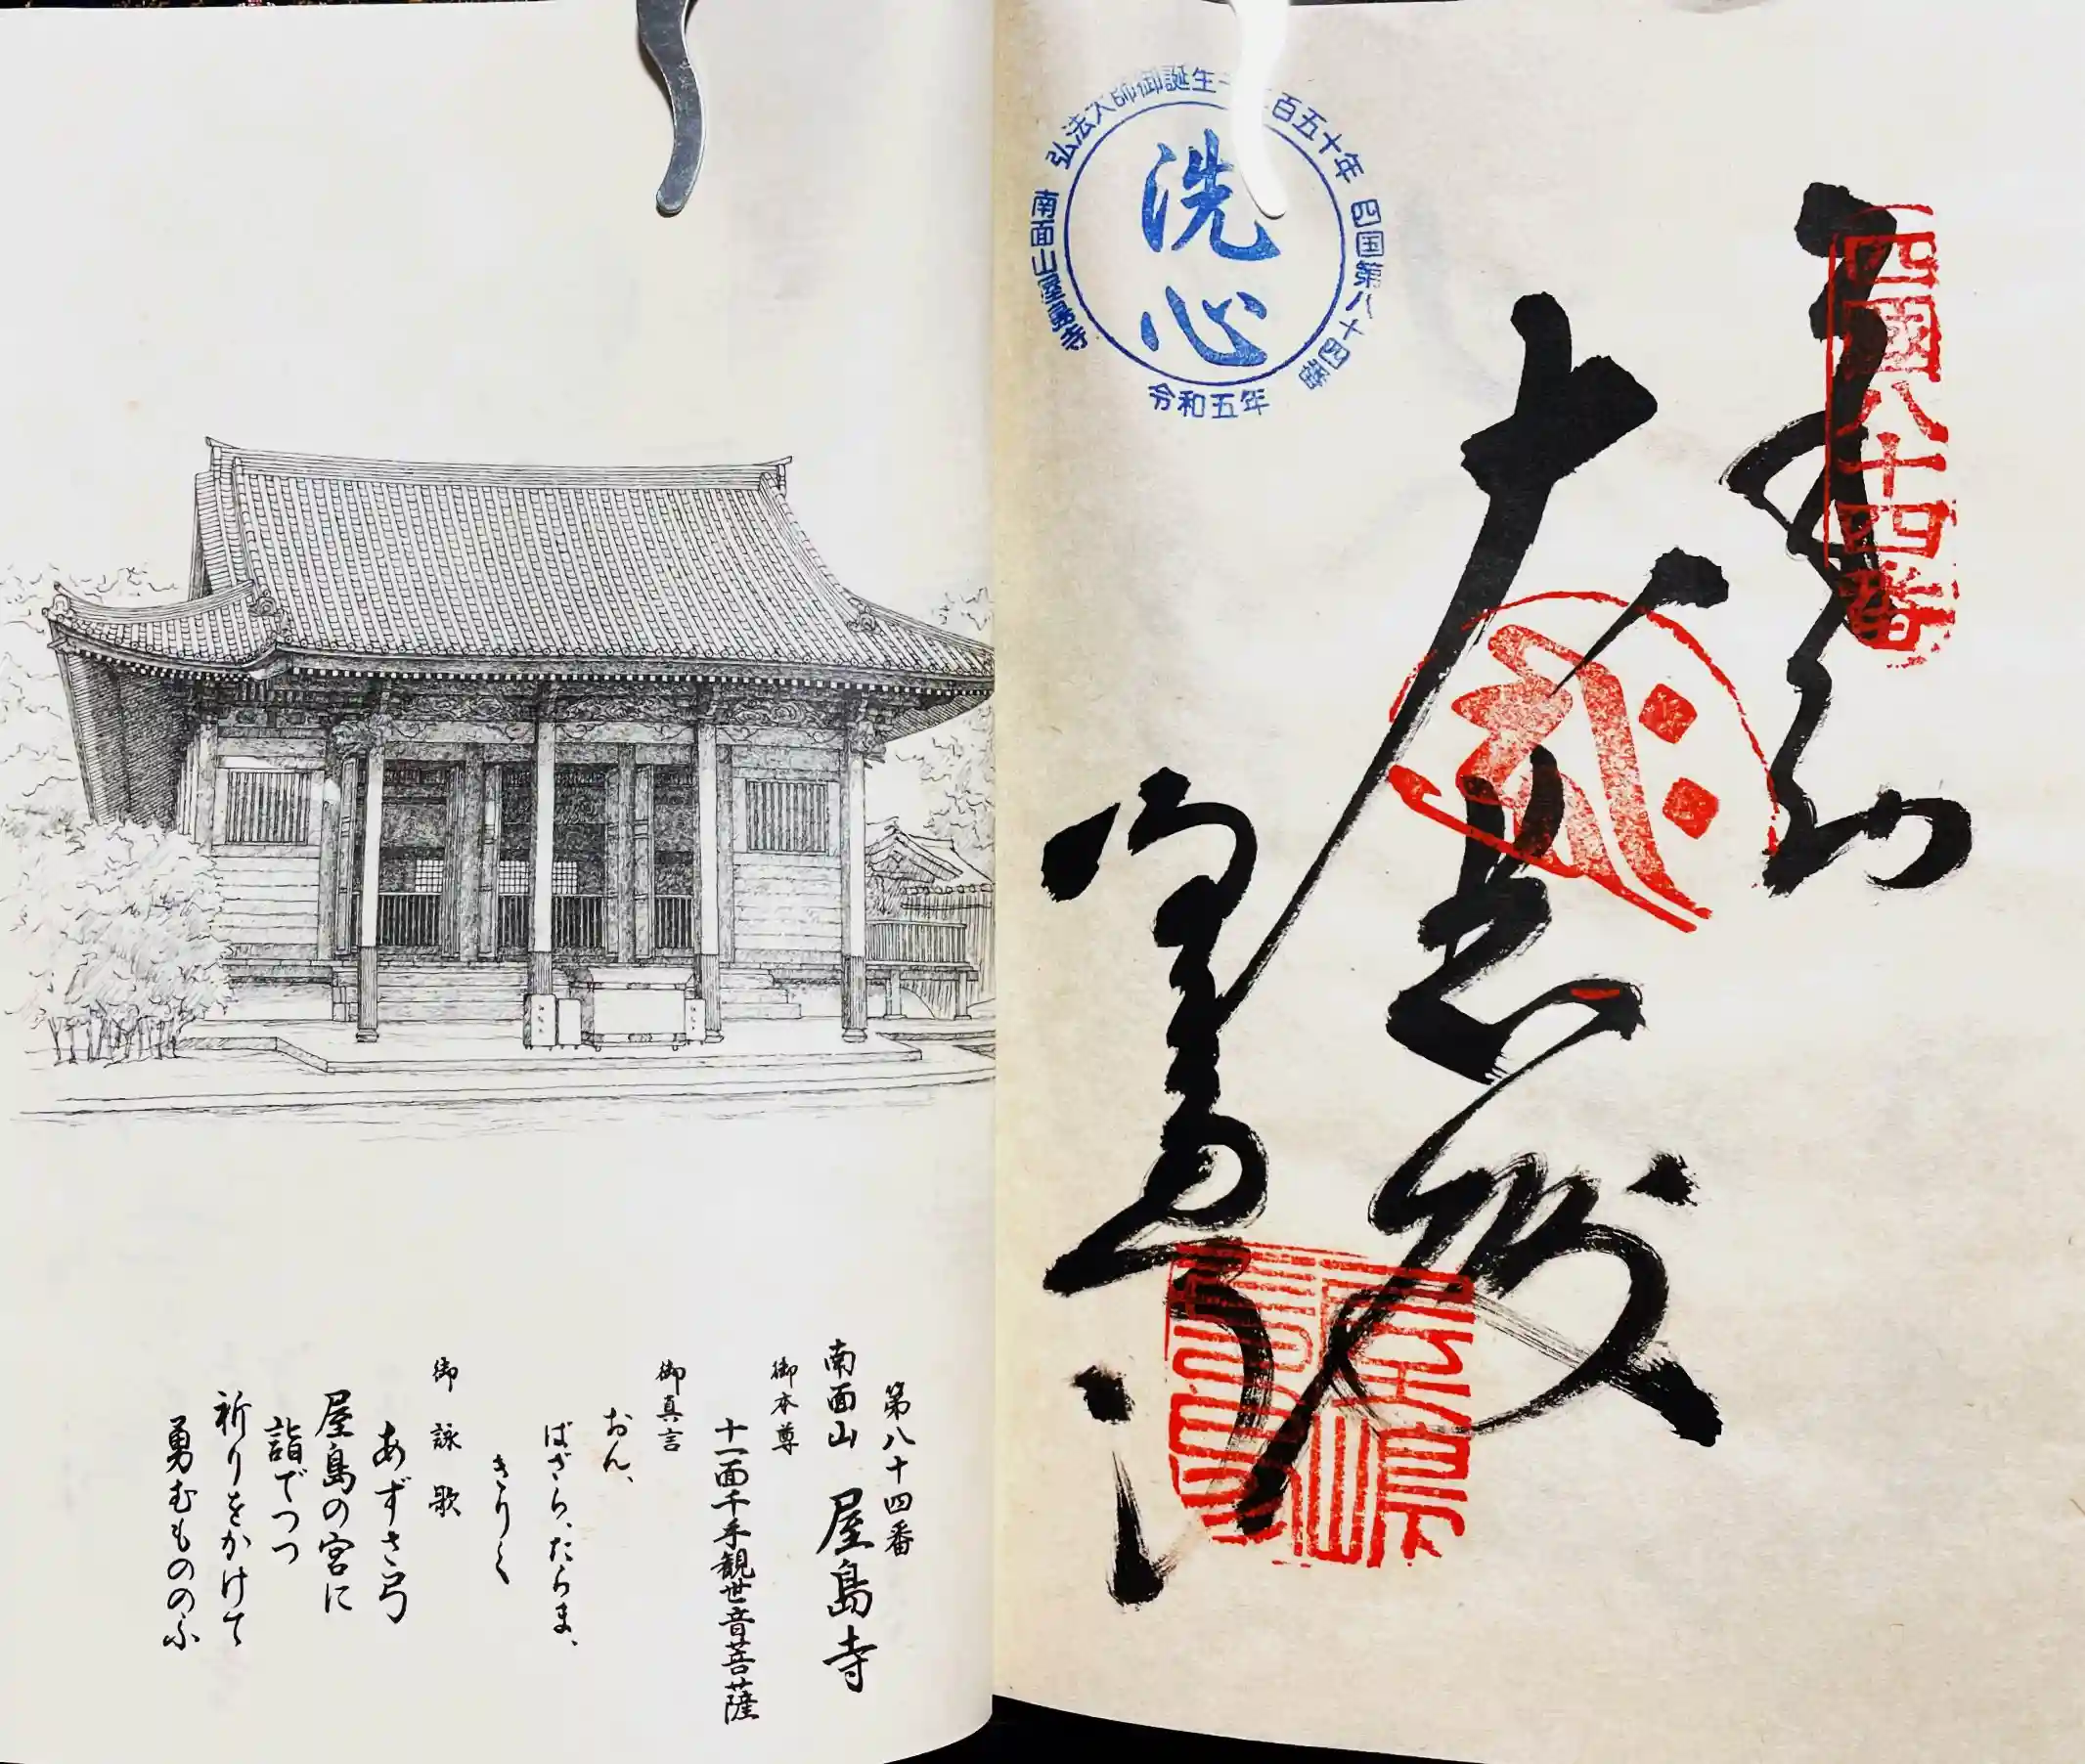 四國八十四番
奉納
大悲殿
屋島寺
弘法大師御誕生千 百五十年
四国第八十四番
南面山屋島寺
令和五年
洗心
第八十四番
南面山 屋島寺
御本尊
十一面千手観世音菩薩
御真言
おん、
ばざら、たらま、
きりく
御詠歌
あずさ弓
屋島の宮に
詣でつつ
祈りをかけて
勇むもののふ